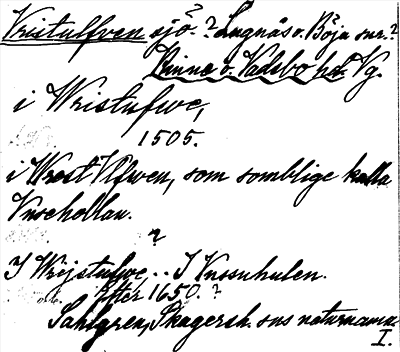 Vristulfven sjö? ? Lugnås o. Böja snr.?
Kinne o. Vadsbo hd. Vg.
i Wristufwe,
1505.
i Wrest Ulfwen, som somblige kalla
Vnsehollan.
?
I Wrijstufwe, .. I Vnsuhulen.
efter 1650. ?
Sahlgren, Skagersh. sns naturnamn
I.